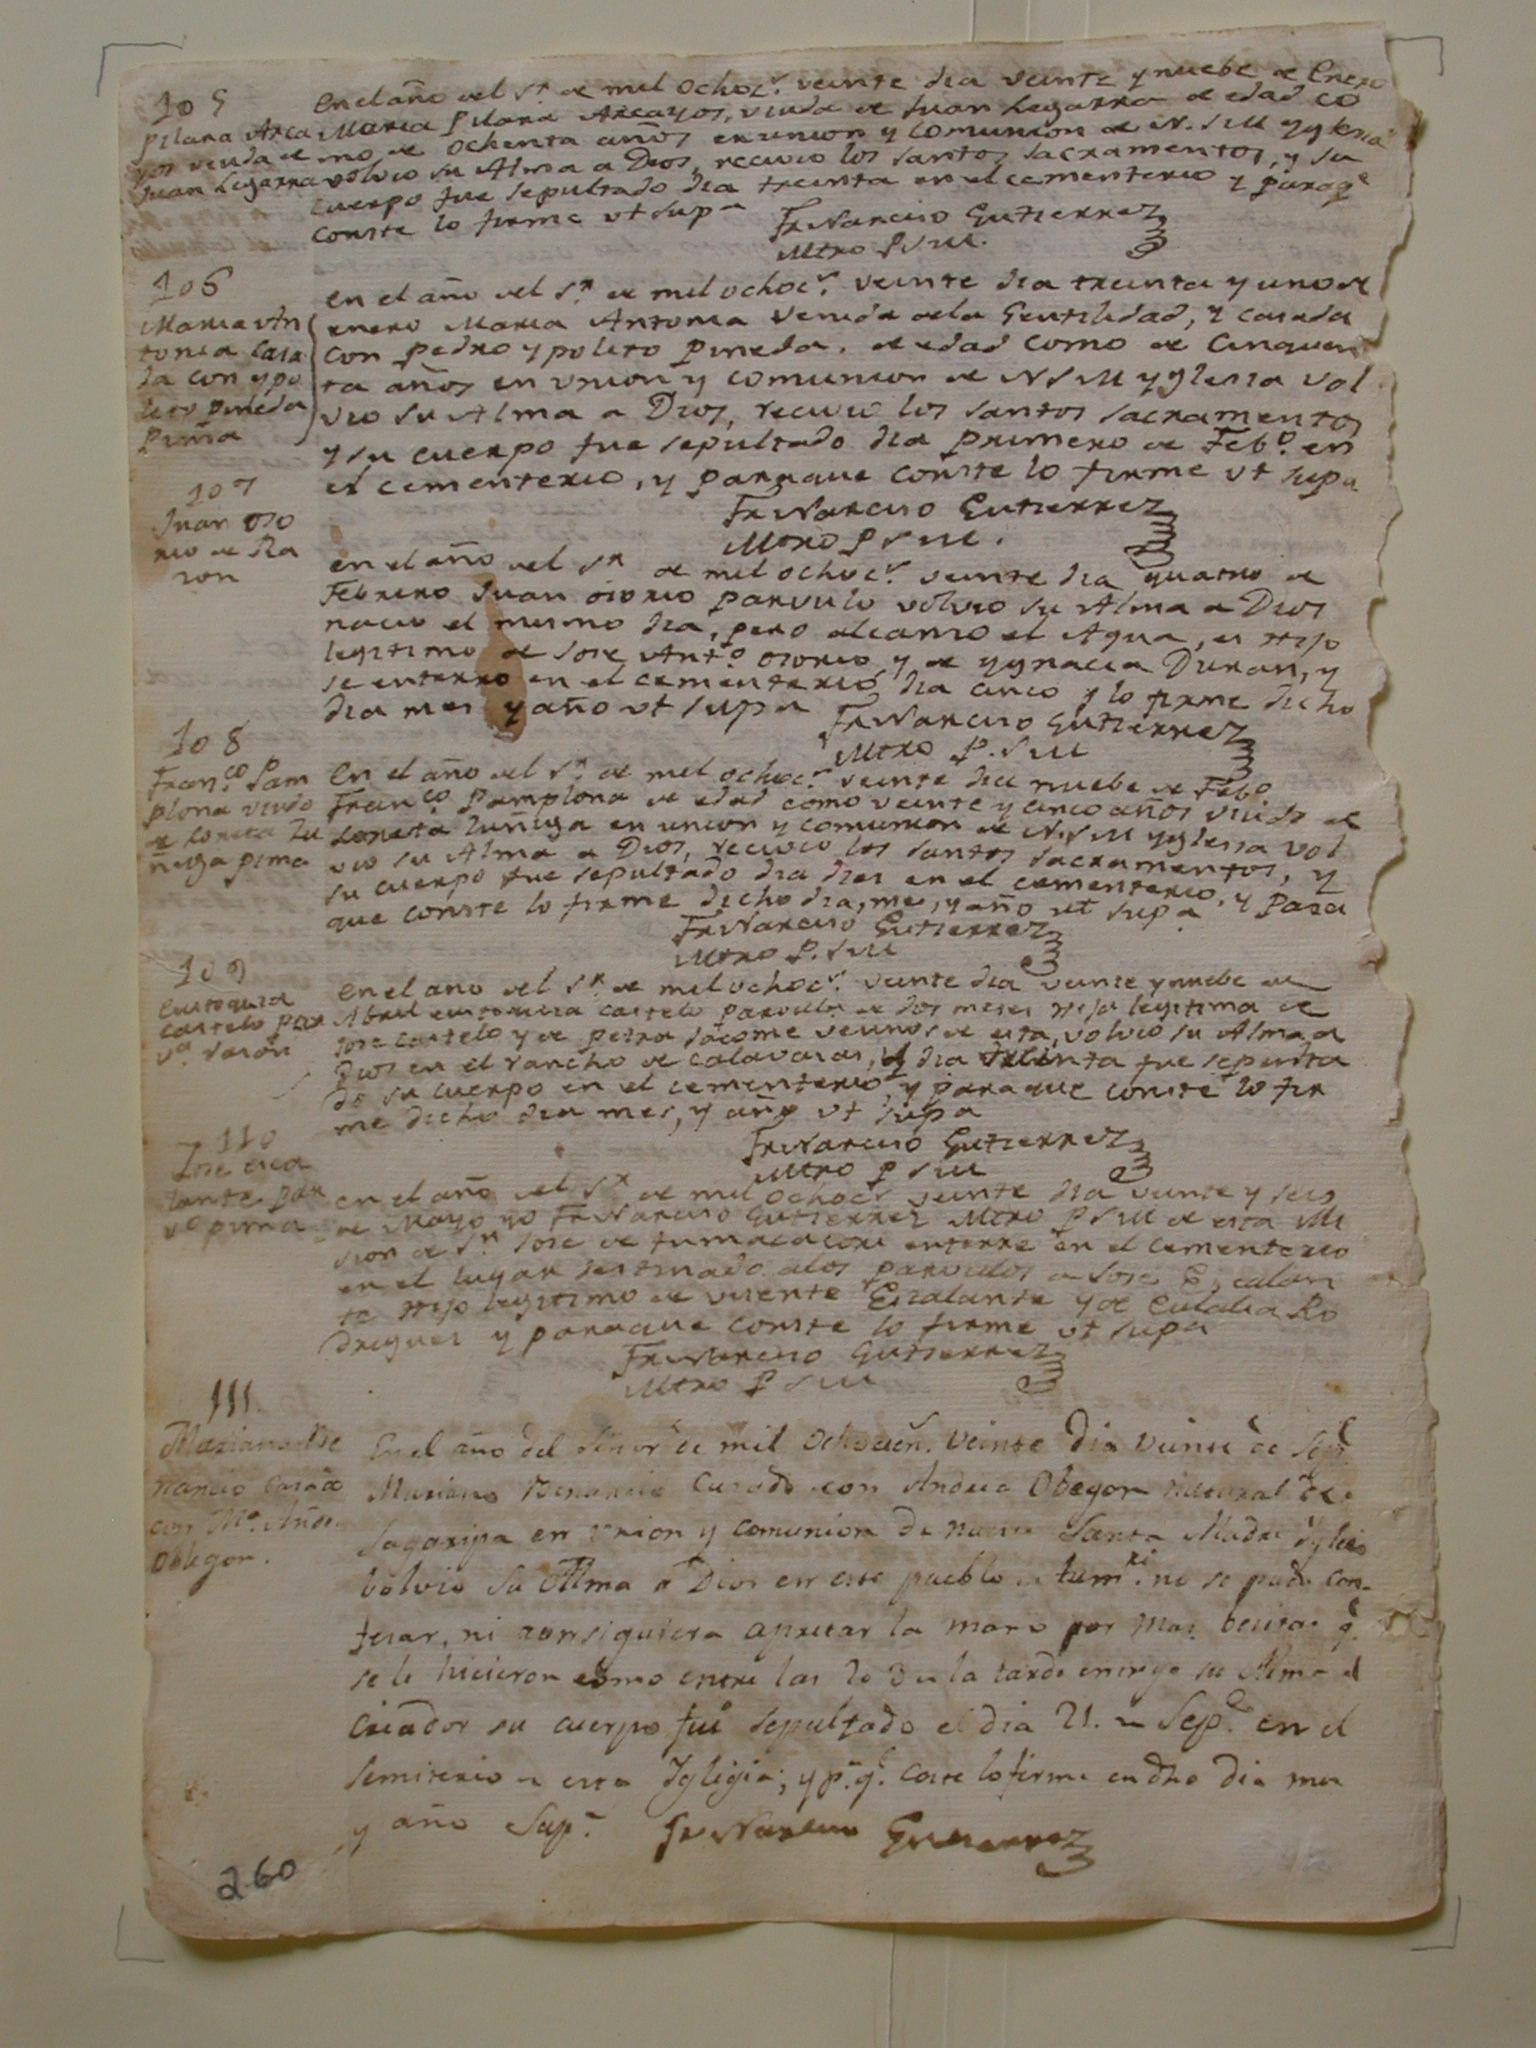 105
Pilara Arca
yos viuda de
Juan Legarra
En el año del Sr. de mil ochocs. veinte dia veinte y nuebe de Enero
Maria Pilara Arcayos, viuda de Juan Legarra de edad co
mo de ochenta años en union y comunion de N. S M Yglesia
volvio su Alma a Dios, recivio los santos sacramentos, y su
cuerpo fue sepultado dia treinta en el cementerio y paraqe
conste lo firme ut supa
Fr Narciso Gutierrez
Mtro P S M.
106
Maria An
tonia casa
da con ypo
lito pineda
Pima
en el año del Sr. de mil ochocs. veinte dia treinta y uno de
enero Maria Antonia Venida dela Gentilidad, y casada
con pedro ypolito pineda. de edad como de Cinquen
ta años en union y comunion de N S M yglesia vol
vio su Alma a Dios, recivio los santos sacramentos
y su cuerpo fue sepultado dia primero de Febo. en
el cementerio, y paraque conste lo firme ut supa
Fr Narciso Gutierrez
Mtro P S M.
107
Juan oso
rio de Ra
zon
en el año del Sr de mil ochocs. veinte dia quatro de
Febrero Juan osorio parvulo volvio su Alma a Dios
nacio el mismo dia, pero alcanso el Agua, es Hijo
legitimo de Jose Anto. osorio y de ygnacia Duran, y
se enterro en el cementerio dia cinco y lo firme dicho
dia mes y año ut supa
Fr Narciso Gutierrez
Mtro P. S M
108
Franco. Pam
plona viudo
de loreta Zu
ñiga pima
En el año del Sr. de mil ochocs. veinte dia nuebe de Febo.
Franco Pamplona de edad como veinte y cinco años viudo de
Loreta Zuñiga en union y comunion de N. S M yglesia vol
vio su Alma a Dios, recivio los santos sacramentos, y
su cuerpo fue sepultado dia dies en el cementerio, y para
que conste lo firme dicho dia, mes, y año ut supa
Fr Narciso Gutierrez
Mtro P. S M
109
Eustoquia
castelo par
va. rason
en el año del Sr. de mil ochocs. veinte dia veinte y nuebe de
Abril castelo parvula de dos meses Hija legitima de
Jose castelo y de petra Jacome vecinos de esta, volvio su Alma a
Dios en el rancho de calavasas, y dia treinta fue sepulta
do su cuerpo en el cementerio, y paraque conste lo fir
me dicho dia mes, y año ut supa
Fr Narciso Gutierrez
Mtro P S M
110
Jose esca
lante par
vo pima
en el año del Sr de mil ochocs veinte dia veinte y seis
de Mayo yo Fr Narciso Gutierrez Mtro P S M de esta Mi
sion de Sn Jose de tumacacori enterre en el cementerio
en el lugar destinado alos parvulos a Jose Escalan
te Hijo legitimo de visente Escalante y de Eulalia Ro
drigues y paraque conste lo firme ut supa
Fr Narciso Gutierrez
Mtro P S M
111.
Mariano Be
nancio casado
con Ma. Andr.
Oblegon.
En el año del Señor de mil Ochocien. Veinte Dia Veinte de Sepe.
Mariano Benancio Casado con Andrea Obegon natural de
Sagaripa en Union y comunion de nuestra Santa Madre Yglesia
volvio su Alma a Dios en este pueblo de tumri. no se pudo con-
fesar, ni consiguiera apretar la mano por mas besitas q.e
se le hicieron como entre las 2 o 3 de la tarde entrego su Alma al
Criador su cuerpo fue sepultado el dia 21. de Sepe. en el
semiterio de esta Yglegia; y p.a q.e coste lo firme en dho dia mes
y año Sup.a
Fr Narciso Gutierrez
260